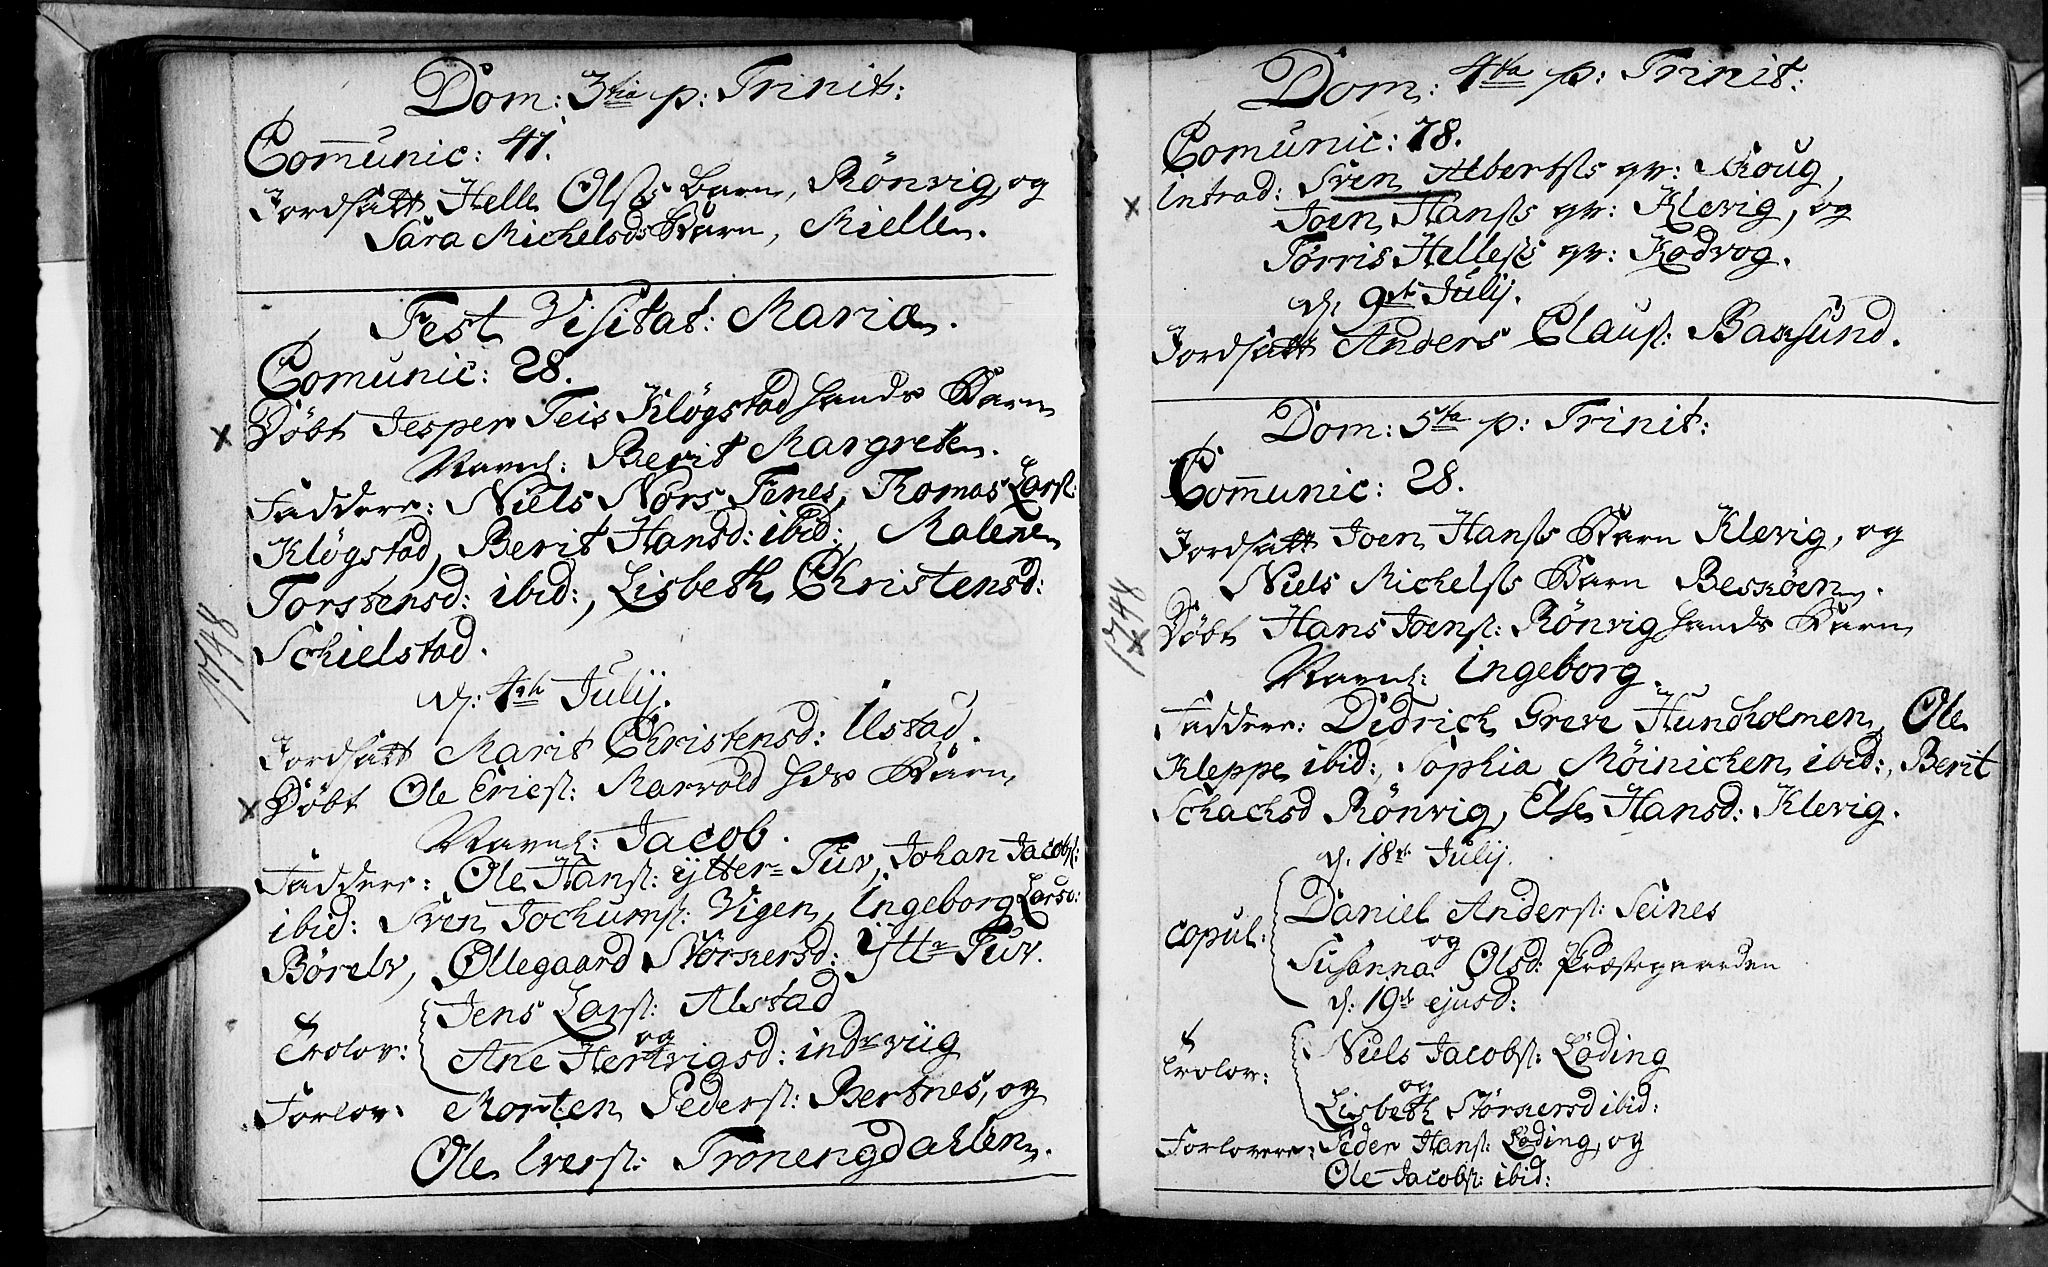 Dom: 3tia p: Trinit:
Comunic: 41.
Jordsatt Helle Olss Barn, Rönvig, og
Sara Michelsds Barn, Mielle.
Fest Visitat: Mariæ.
Comunic: 28.
Döbt Jesper Teis Klögstad hands Barn
Navnl: Berit Margrete.
Faddere: Niels Nors Fenes, Tomas Larss:
Klögstad, Berit Hansd: ibid:, Malene
Torstensd: ibid:, Lisbeth Christensd:
Schielstad.
1748
d: 4de Julij.
Jordsatt Marit Christensd: Ilstad.
Döbt Ole Erics: Marvold hds Barn
Navnl: Jacob.
Faddere: Ole Hans: ytter= Tuv, Johan Jacobs:
ibid: Sven Jochums: Vigen, Ingeborg Larsd:
Börelv, Øllegaard Störkersd: Ytt= Tuv.
Jens Lars: Alstad
Trolov: og
Ane Hertvigsd: indrviig
Forlov: Morten Peders: Bertnes, og
Ole Ivers: Tronengdahlen.
Dom: 4ta p: Trinit:
Comunic: 78.
Introd: Sven Albertss qv: Skoug,
Joen Hanss qv: Klevig, og
Torris Helless qv: Kodvog.
d. 9de Julij.
Jordsatt Anders Claus: Baasund.
Dom: 5ta p: Trinit:
Comunic: 28.
Jordsatt Joen Hanss Barn Klevig, og
Niels Michelss Barn Beskøen.
1748
Döbt Hans Joens: Rönvig hands Barn
Navnl: Ingeborg.
Faddere: Didrich Greve Hundholmen, Ole
Kleppe ibid:, Sophia Möinichen ibid:, Berit
Schachsd Rönvig, Else Hansd: Klevig.
d. 18de Julij.
Daniel Anders: Seines
copul: og
Susanna Olsd: Præstegaarden
d: 19de ejusd:
Niels Jacobs: Löding
Trolov: og
Lisbeth Störkersd ibid:
Forlovere: Peder Hans: Löding, og
Ole Jacobs: ibid: